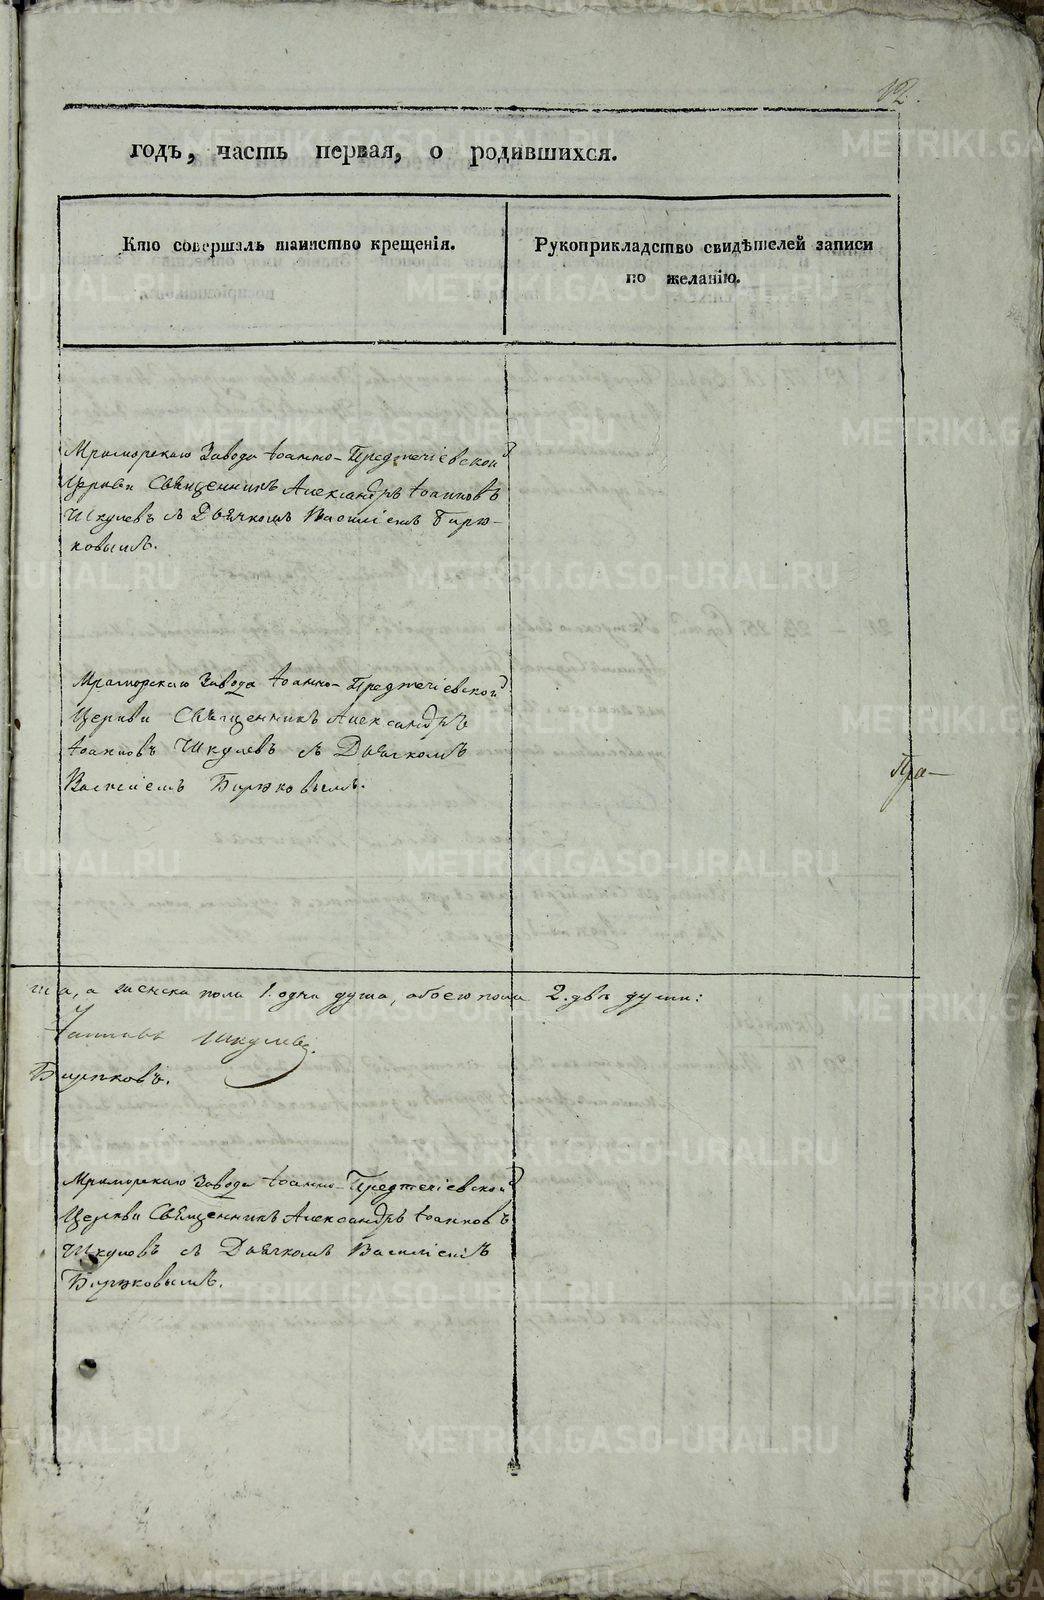 12.
годъ, часть первая, о родившихся.
Кто совершалъ таинство крещенія.
Рукоприкладство свидѣтелей записи
по желанію.
Мраморскаго Завода Іоанно-Предтечіевской
Церкви Священникъ Александръ Іоанновъ
Шкулевъ съ Дьячкомъ Василіемъ Бирю-
ковымъ.
Мраморскаго Завода Іоанно-Предтечіевской
Церкви Священникъ Александръ
Іоанновъ Шкулевъ съ Дьячкомъ
Василіемъ Бирюковымъ.
Пра-
а, а женска пола 1. одна душа, обоего пола 2. двѣ души:
Шкулевъ.
Бирюковъ.
Мраморскаго Завода Іоанно-Предтечіевской
Церкви Священникъ Александръ Іоанновъ
Шкулевъ съ Дьячкомъ Василіемъ
Бирюковымъ.
METRIKI.GASO-URAL.RU